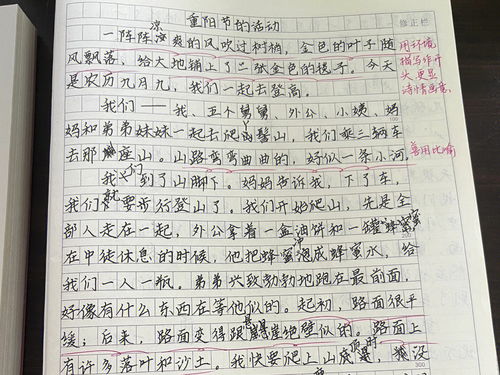 重阳节的活动
修正栏
一阵阵凉爽的风吹过树梢，金色的叶子随
风飘落，给大地铺上了一张金色的毯子。今天
是农历九月九，我们一起去登高。
我们——我、五个舅舅、外公、小姨、妈
妈和弟弟妹妹一起去爬山，我们乘三辆车
去那座山。山路弯弯曲曲的，好似一条小河
我们到了山脚下。妈妈告诉我，下了车，
我们就要步行登山了。我们开始爬山，先是全
部人走在一起，外公拿着一盒油饼和一罐蜂蜜
在中徒休息的时候，他把蜂蜜冲成蜂蜜水，给
我们一人一瓶。弟弟兴致勃勃地跑在最前面，
好像有什么东西在等他似的。起初，路面很平
缓；后来，路面变得跟悬崖绝壁似的。路面上
有许多落叶和沙土。我快要爬上山顶时，没
300
用环境
描写作开
头更显
诗情画意
善用比喻